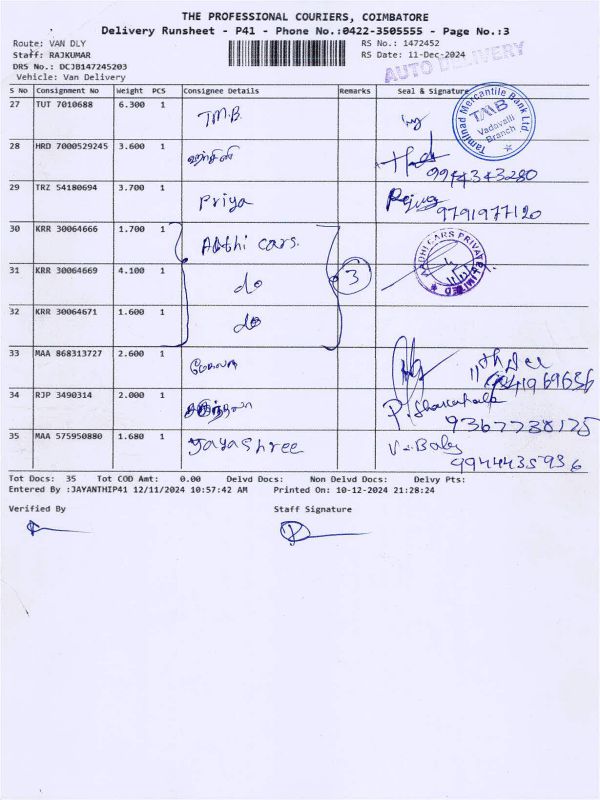 THE PROFESSIONAL COURIERS, COIMBATORE
Delivery Runsheet - P41 - Phone No.:0422-3505555 - Page No.:3
Route: VAN DLY RS No.: 1472452
Staff: RAJKUMAR RS Date: 11-Dec-2024
DRS No.: DCJB147245203
Vehicle: Van Delivery
AUTO DELIVERY
S No Consignment No Weight PCS Consignee Details Remarks Seal & Signature
27 TUT 7010688 6.300 1 T.M.B.
Tamilnad Mercantile Bank Ltd. TMB Vadavalli Branch
28 HRD 7000529245 3.600 1 9944343280
29 TRZ S4180694 3.700 1 Priya 9791977120
30 KRR 30064666 1.700 1 Adhi cars.
AADHI CARS PRIVATE LIMITED
31 KRR 30064669 4.100 1 do 3
32 KRR 30064671 1.600 1 do
33 MAA 868313727 2.600 1
34 RJP 3490314 2.000 1 9367738175
35 MAA 575950880 1.680 1 Jayashree V. Baby
9944435936
Tot Docs: 35 Tot COD Amt: 0.00 Delvd Docs: Non Delvd Docs: Delvy Pts:
Entered By :JAYANTHIP41 12/11/2024 10:57:42 AM Printed On: 10-12-2024 21:28:24
Verified By Staff Signature